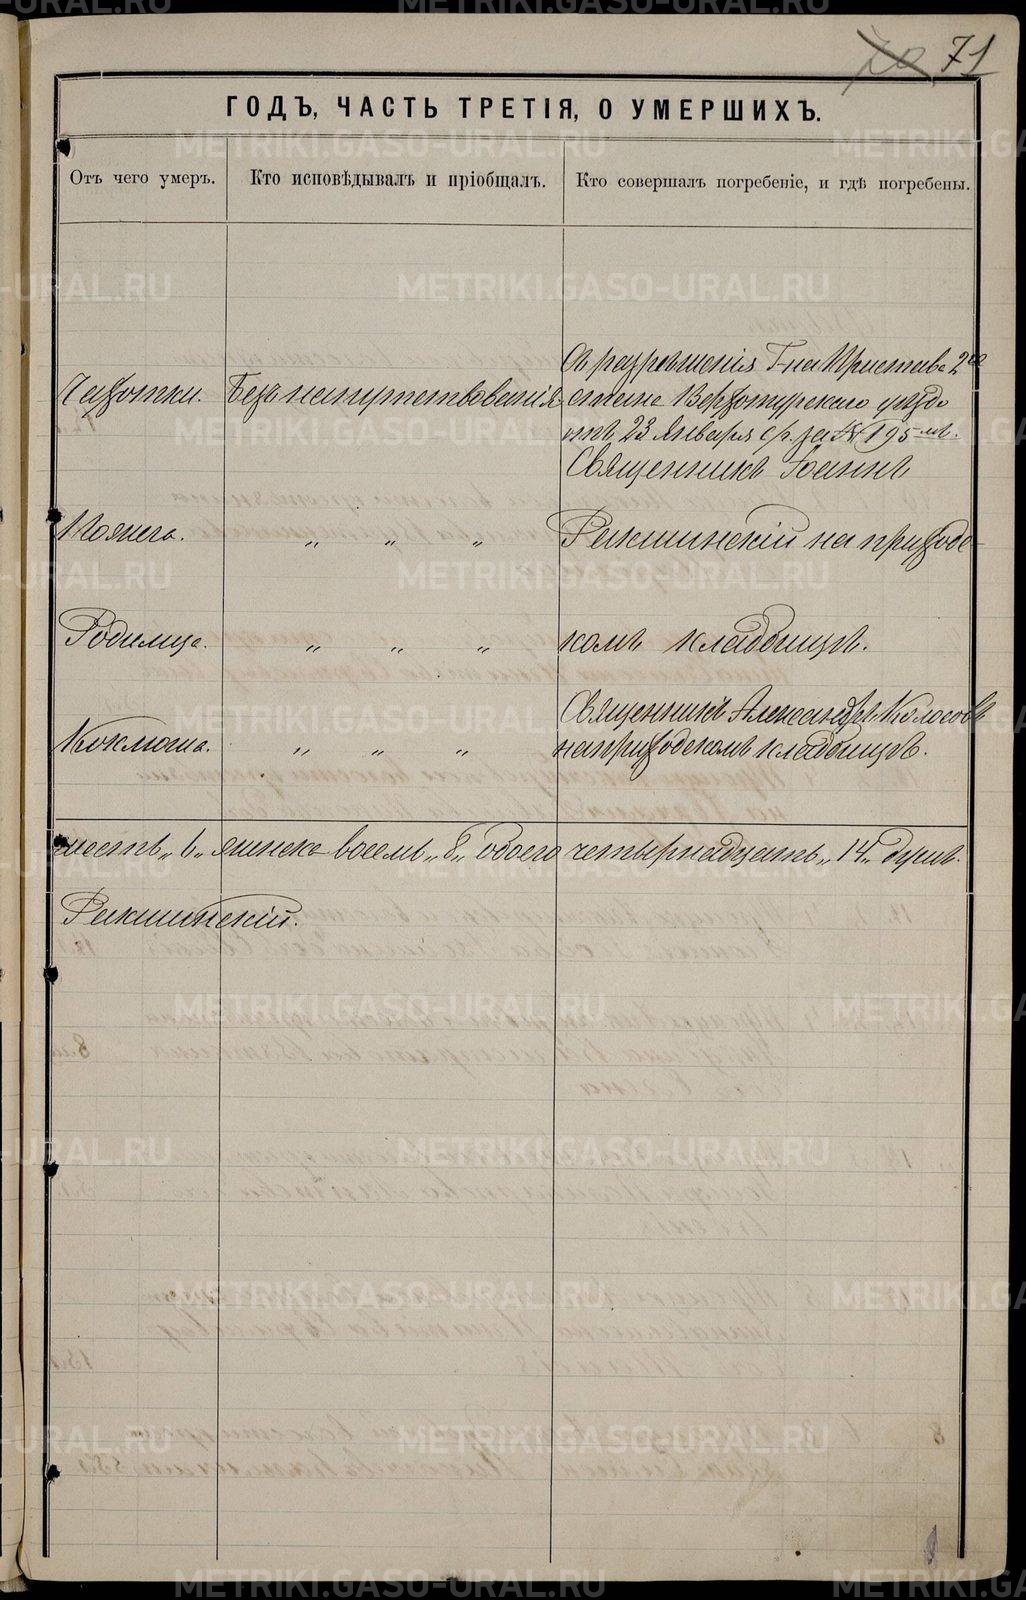 70 71
ГОДЪ, ЧАСТЬ ТРЕТІЯ, О УМЕРШИХЪ.
Отъ чего умеръ. Кто исповѣдывалъ и пріобщалъ. Кто совершалъ погребеніе, и гдѣ погребены.
Съ разрѣшенія Г-на Пристава 2го
Чахотки. Безъ напутствованія стана Верхотурскаго уѣзда
отъ 23 Января с/г. за № 195 мъ.
Священникъ Іоаннъ
Поноса. „ „ „ Рекшинскій на приходс-
Родимца. „ „ „ комъ кладбищѣ.
Священникъ Александръ Колосовъ
Коклюша. „ „ „ на приходскомъ кладбищѣ.
шесть „6„ женска восемь „8„ обоего четырнадцать „14„ душъ.
Рекшинскій.
METRIKI.GASO-URAL.RU